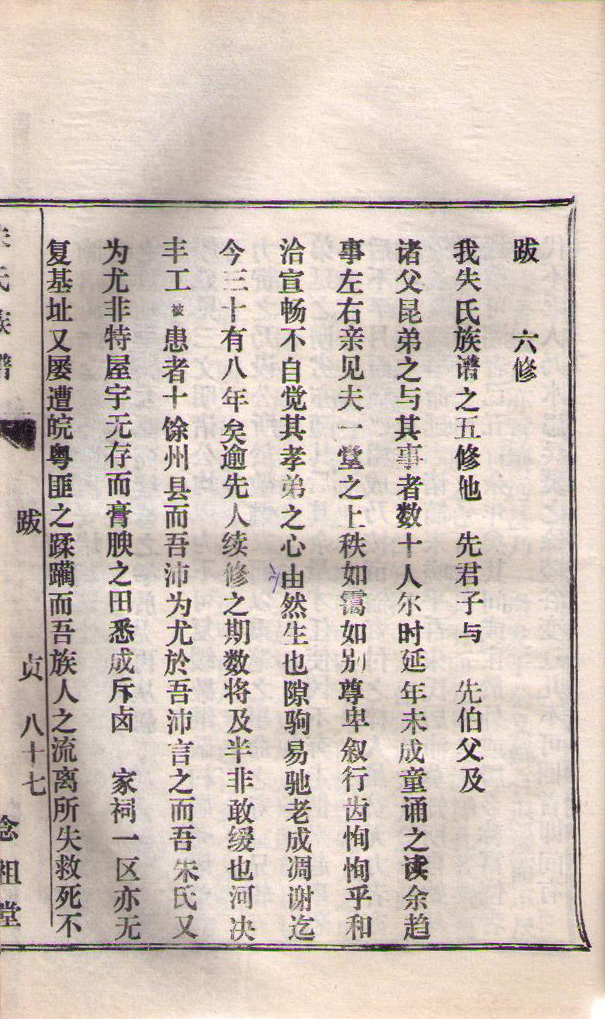 跋 六修
我朱氏族谱之五修他 先君子与 先伯父及
诸父昆弟之与其事者数十人尔时延年未成童诵之读余趋
事左右亲见夫一堂之上秩如霭如别尊卑叙行齿恂恂乎和
洽宣畅不自觉其孝弟之心由然生也隙驹易驰老成凋谢迄
今三十有八年矣逾先人续修之期数将及半非敢缓也河决
丰工被患者十馀州县而吾沛为尤於吾沛言之而吾朱氏又
为尤非特屋宇无存而膏腴之田悉成斥卤 家祠一区亦无
复基址又屡遭皖粤匪之蹂躏而吾族人之流离所失救死不
氏族谱
跋
贞 八十七
念祖堂